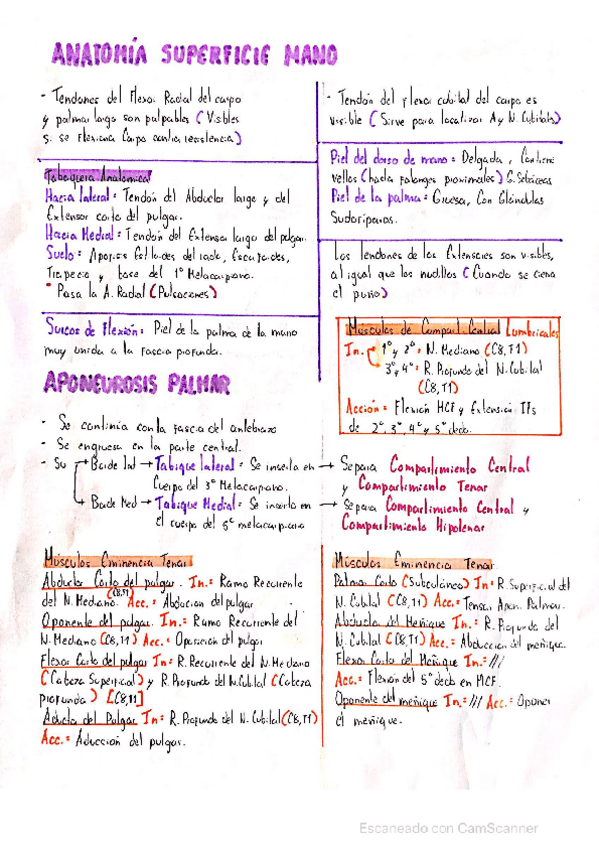 ANATOMÍA SUPERFICIE MANO
- Tendones del Flexor Radial del carpo
y palmar largo son palpables (Visibles
si se Flexiona Carpo contra resistencia)
Tabaquera Anatomica
Hacia lateral = Tendón del Abductor largo y del
Extensor corto del pulgar.
Hacia Medial = Tendón del Extensor largo del pulgar.
Suelo = Apofisis Estiloides del radio, Escafoides,
Trapecio y base del 1º Metacarpiano.
* Pasa la A. Radial (Pulsaciones)
Surcos de Flexión = Piel de la palma de la mano
muy unida a la fascia profunda.
- Tendón del Flexor cubital del carpo es
visible (Sirve para localizar A y N. Cubitales)
Piel del dorso de mano = Delgada, Contiene
vellos (hasta falanges proximales) G. Sebáceas
Piel de la palma = Gruesa, Con Glándulas
Sudoríparas.
Los tendones de los Extensores son visibles,
al igual que los nudillos (Cuando se cierra
el puño)
Músculos de Compart. Central Lumbricales
In. 1º y 2º = N. Mediano (C8, T1)
3º, 4º = R. Profundo del N. Cubital
(C8, T1)
Acción = Flexión MCF y Extensión IFs
de 2º, 3º, 4º y 5º dedo.
APONEUROSIS PALMAR
- Se continúa con la fascia del antebrazo
- Se engruesa en la parte central.
- Su Borde lat → Tabique lateral = Se inserta en → Separa Compartimiento Central
Cuerpo del 3º Metacarpiano. y Compartimiento Tenar
Borde Med → Tabique Medial = Se inserta en → Separa Compartimiento Central y
el cuerpo del 5º metacarpiano Compartimiento Hipotenar
Músculos Eminencia Tenar
Abductor Corto del pulgar. In. = Ramo Recurrente
del N. Mediano. (C8, T1) Acc. = Abducion del pulgar
Oponente del pulgar. In. = Ramo Recurrente del
N. Mediano (C8, T1) Acc. = Oposicion del pulgar
Flexor Corto del pulgar In = R. Recurrente del N. Mediano
(Cabeza Superficial) y R. Profundo del N. Cubital (Cabeza
profunda) [C8, T1]
Aductor del Pulgar In = R. Profundo del N. Cubital (C8, T1)
Acc. = Aduccion del pulgar.
Músculos Eminencia Tenar
Palmar Corto (Subcutáneo) In = R. Superficial del
N. Cubital (C8, T1) Acc = Tensar Apon. Palmar.
Abductor del Meñique In. = R. Profundo del
N. Cubital (C8, T1) Acc. = Abduccion del meñique.
Flexor Corto del Meñique In. = ///
Acc. = Flexión del 5º dedo en MCF.
Oponente del meñique In. = /// Acc. = Oponer
el meñique.
Escaneado con CamScanner